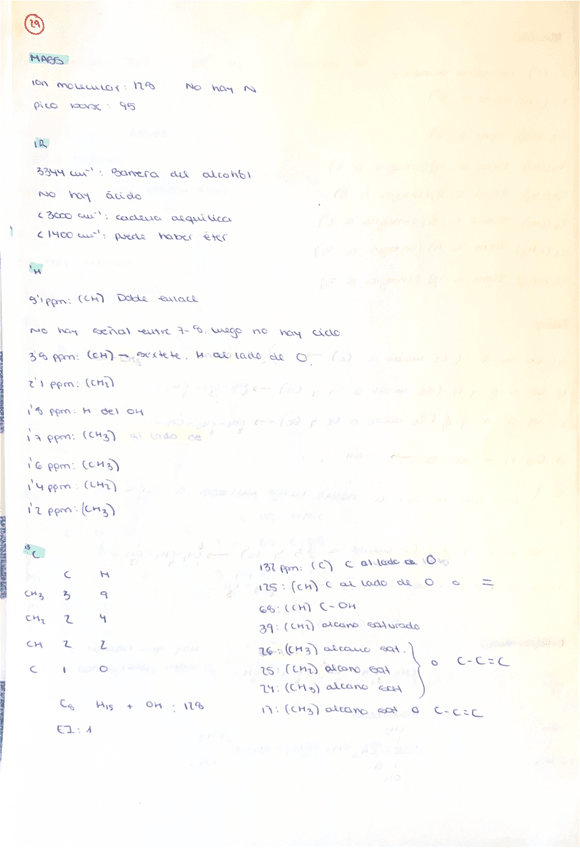 29
MASS
ion molecular: 128 No hay N
pico base: 95
IR
3344 cm⁻¹: Banera del alcohol
No hay ácido
<3000 cm⁻¹: cadena alquílica
<1400 cm⁻¹: puede haber éter
¹H
5'1 ppm: (CH) Doble enlace
No hay señal entre 7-8. luego no hay ciclo
3'8 ppm: (CH) → sextete. H al lado de O.
2'1 ppm: (CH₂)
1'8 ppm: H del OH
1'7 ppm: (CH₃) al lado de
1'6 ppm: (CH₃)
1'4 ppm: (CH₂)
1'2 ppm: (CH₃)
¹³C
C H
CH₃ 3 9
CH₂ 2 4
CH 2 2
C 1 0
C₈ H₁₅ + OH : 128
EI: 1
132 ppm: (C) C al lado de O
125: (CH) C al lado de O o =
68: (CH) C-OH
39: (CH₂) alcano saturado
26: (CH₃) alcano sat.
25: (CH₂) alcano sat o C-C=C
24: (CH₃) alcano sat
17: (CH₃) alcano sat o C-C=C